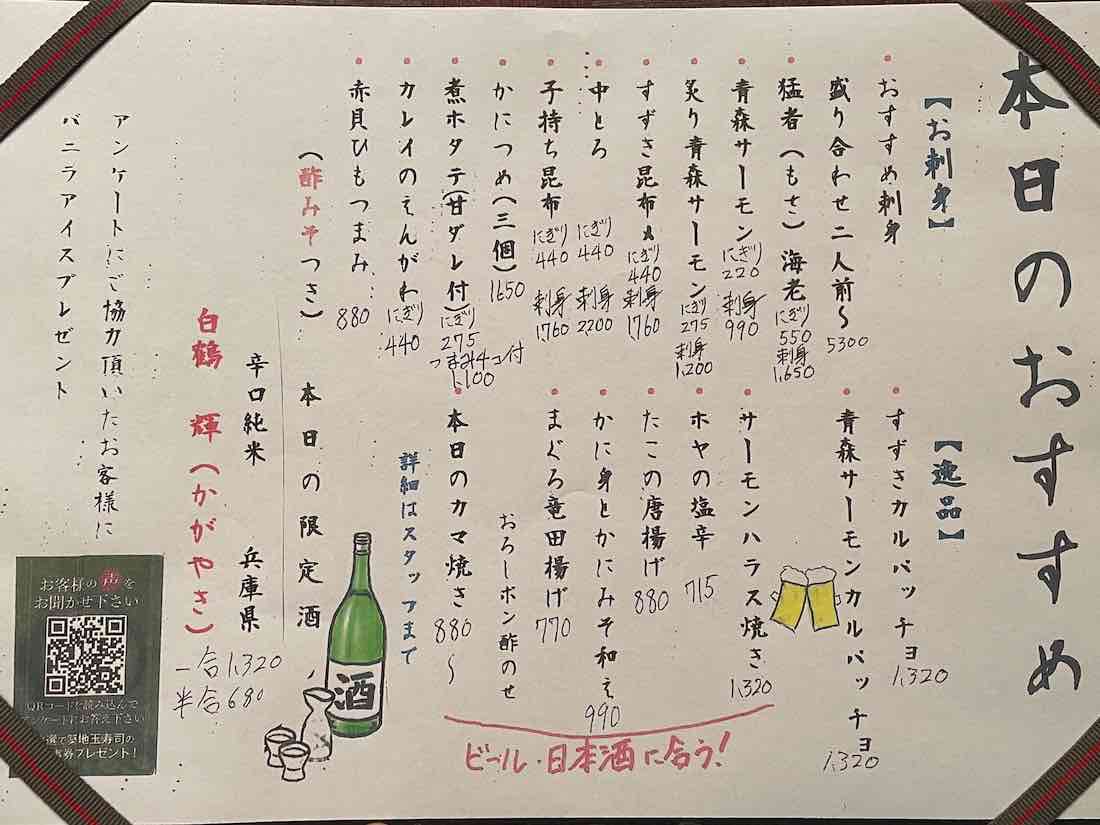 本日のおすすめ
【お刺身】
おすすめ刺身
盛り合わせ二人前〜 5300
猛者(もさ)海老 にぎり 550 刺身 1,650
青森サーモン にぎり 220 刺身 990
炙り青森サーモン にぎり 275 刺身 1,200
すずき昆布〆 にぎり 440 刺身 1,760
中とろ にぎり 440 刺身 2200
子持ち昆布 にぎり 440 刺身 1,760
かにつめ(三個) 1650
煮ホタテ(甘ダレ付) にぎり 275 つまみ4コ付 1,100
カレイのえんがわ にぎり 440
赤貝ひもつまみ 880
(酢みそつき)
【逸品】
すずきカルパッチョ 1,320
青森サーモンカルパッチョ 1,320
サーモンハラス焼き 1,320
ホヤの塩辛 715
たこの唐揚げ 880
かに身とかにみそ和え 990
まぐろ竜田揚げ 770
おろしポン酢のせ
本日のカマ焼き 880〜
詳細はスタッフまで
ビール・日本酒に合う!
本日の限定酒
酒
辛口純米 兵庫県
白鶴 輝(かがやき)
一合 1,320
半合 680
アンケートにご協力頂いたお客様に
バニラアイスプレゼント
お客様の声を
お聞かせ下さい
QRコードを読み込んで
アンケートにお答え下さい
選で築地玉寿司の
券プレゼント!